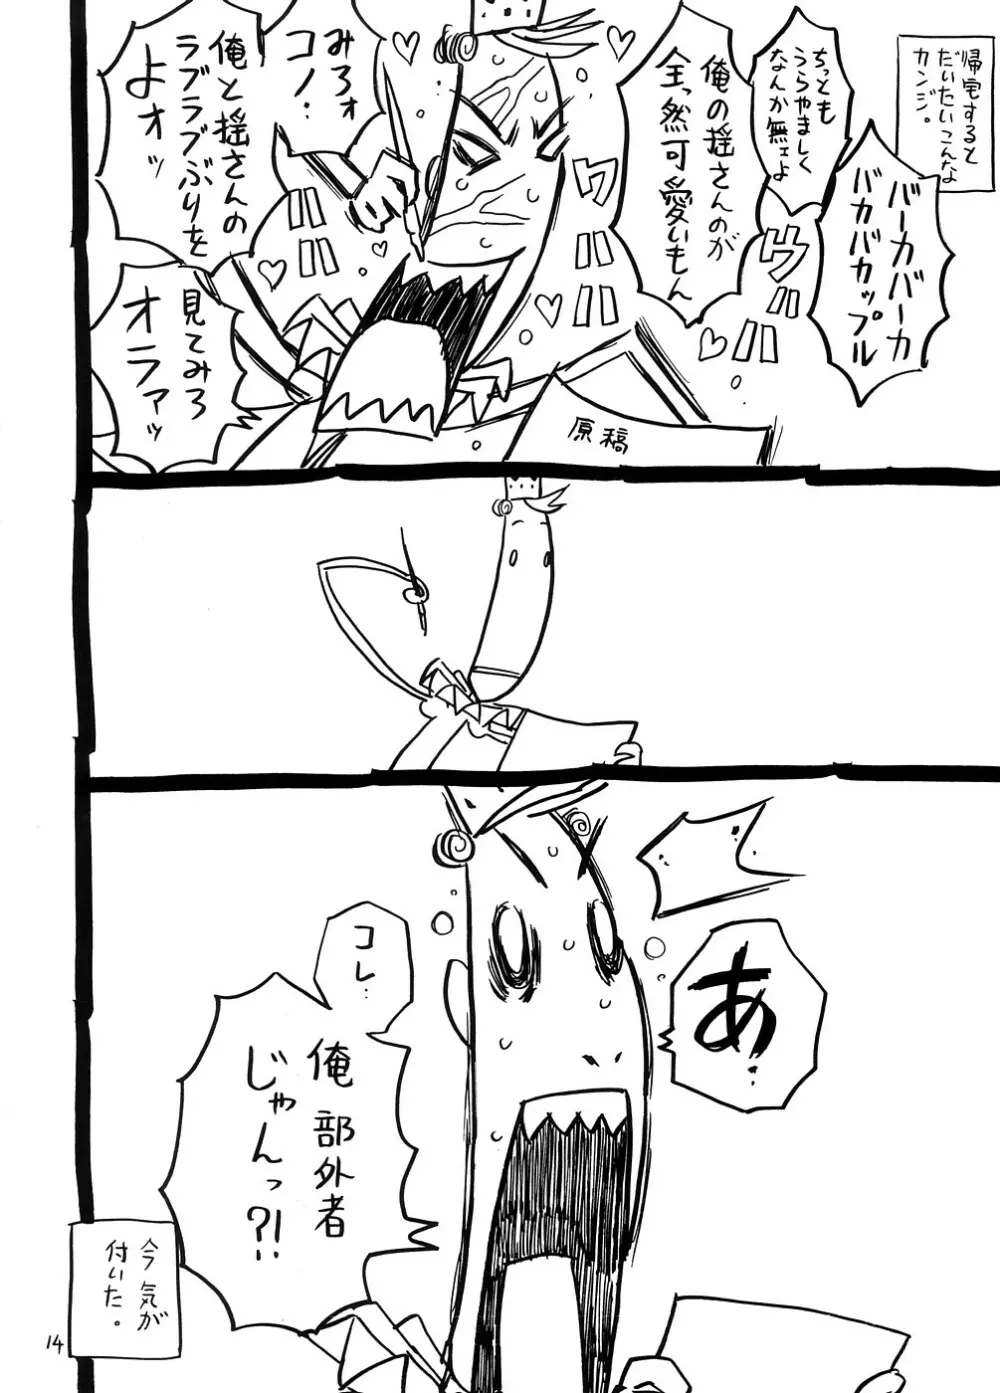 帰宅すると
だいたいこんな
カンジ。
バーカバーカ
バカバカップル
ちっとも
うらやましく
なんか無ェよ
ウハハ
俺の揺さんのが
全っ然可愛いもん
ウハハハ
みろォ
コノ…
俺と揺さんの
ラブラブぶりを
よォッ
ハハハハ
見てみろ
オラァッ
原稿
あ…
コレ…
俺部外者
じゃんっ?!
今気が
付いた。
14